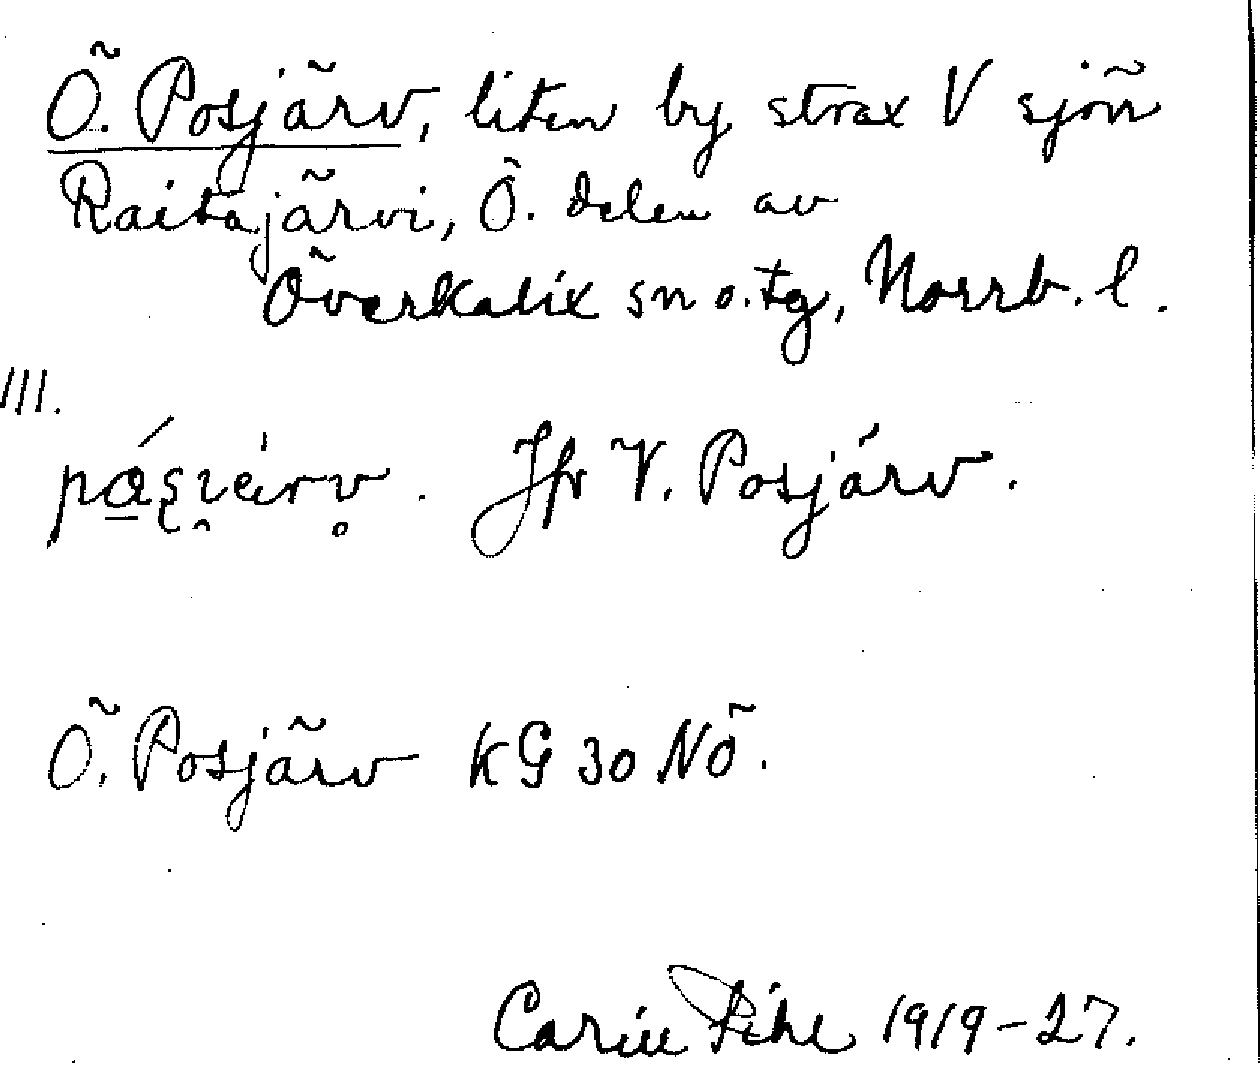 Ö. Posjärv, liten by strax V sjön
Raitajärvi, Ö. delen av
Överkalix sn o. tg, Norrb. l.
III.
Jfr V. Posjärv.
Ö. Posjärv KG 30 NÖ.
Carin Pihl 1919-27.